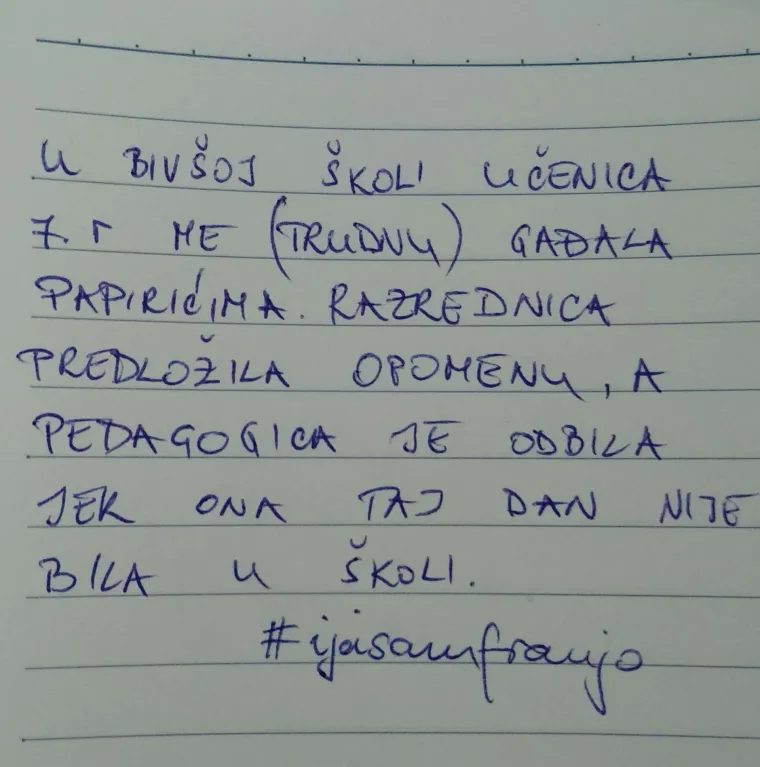 U BIVŠOJ ŠKOLI UČENICA
7. r ME (TRUDNU) GAĐALA
PAPIRIĆIMA. RAZREDNICA
PREDLOŽILA OPOMENU, A
PEDAGOGICA JE ODBILA
JER ONA TAJ DAN NIJE
BILA U ŠKOLI.
#ijasamfranjo